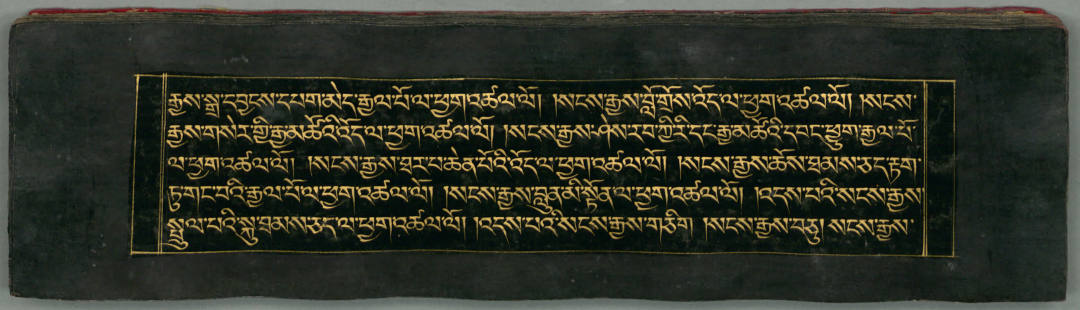 རྒྱས་སྒྲ་དབྱངས་དཔག་མེད་རྒྱལ་པོ་ལ་ཕྱག་འཚལ་ལོ། །སངས་རྒྱས་བློ་གྲོས་འོད་ལ་ཕྱག་འཚལ་ལོ། །སངས་
རྒྱས་གསེར་གྱི་རྒྱ་མཚོའི་འོད་ལ་ཕྱག་འཚལ་ལོ། །སངས་རྒྱས་ཤེས་རབ་ཀྱི་རི་དང་རྒྱ་མཚོའི་དབང་ཕྱུག་རྒྱལ་པོ་
ལ་ཕྱག་འཚལ་ལོ། །སངས་རྒྱས་ཐར་པ་ཆེན་པོའི་འོད་ལ་ཕྱག་འཚལ་ལོ། །སངས་རྒྱས་ཆོས་ཐམས་ཅད་རྟག་
ཏུ་གང་བའི་རྒྱལ་པོ་ལ་ཕྱག་འཚལ་ལོ། །སངས་རྒྱས་བླུན་མི་སྟོན་ལ་ཕྱག་འཚལ་ལོ། །འདས་པའི་སངས་རྒྱས་
སྤྲུལ་པའི་སྐུ་ཐམས་ཅད་ལ་ཕྱག་འཚལ་ལོ། །འདས་པའི་སངས་རྒྱས་གཅིག །སངས་རྒྱས་བཅུ། སངས་རྒྱས་